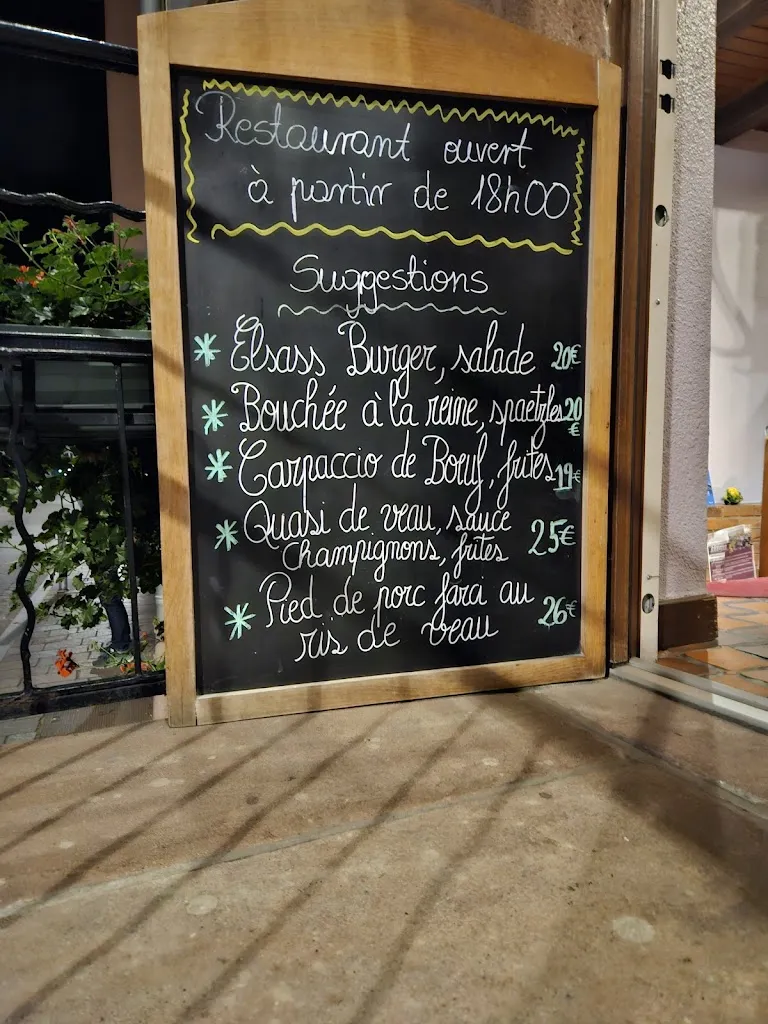 Restaurant ouvert
à partir de 18h00
Suggestions
* Elsass Burger, salade 20€
* Bouchée à la reine, spaetzles 20€
* Carpaccio de Boeuf, frites 19€
* Quasi de veau, sauce
Champignons, frites 25€
* Pied de porc farci au
ris de veau 26€